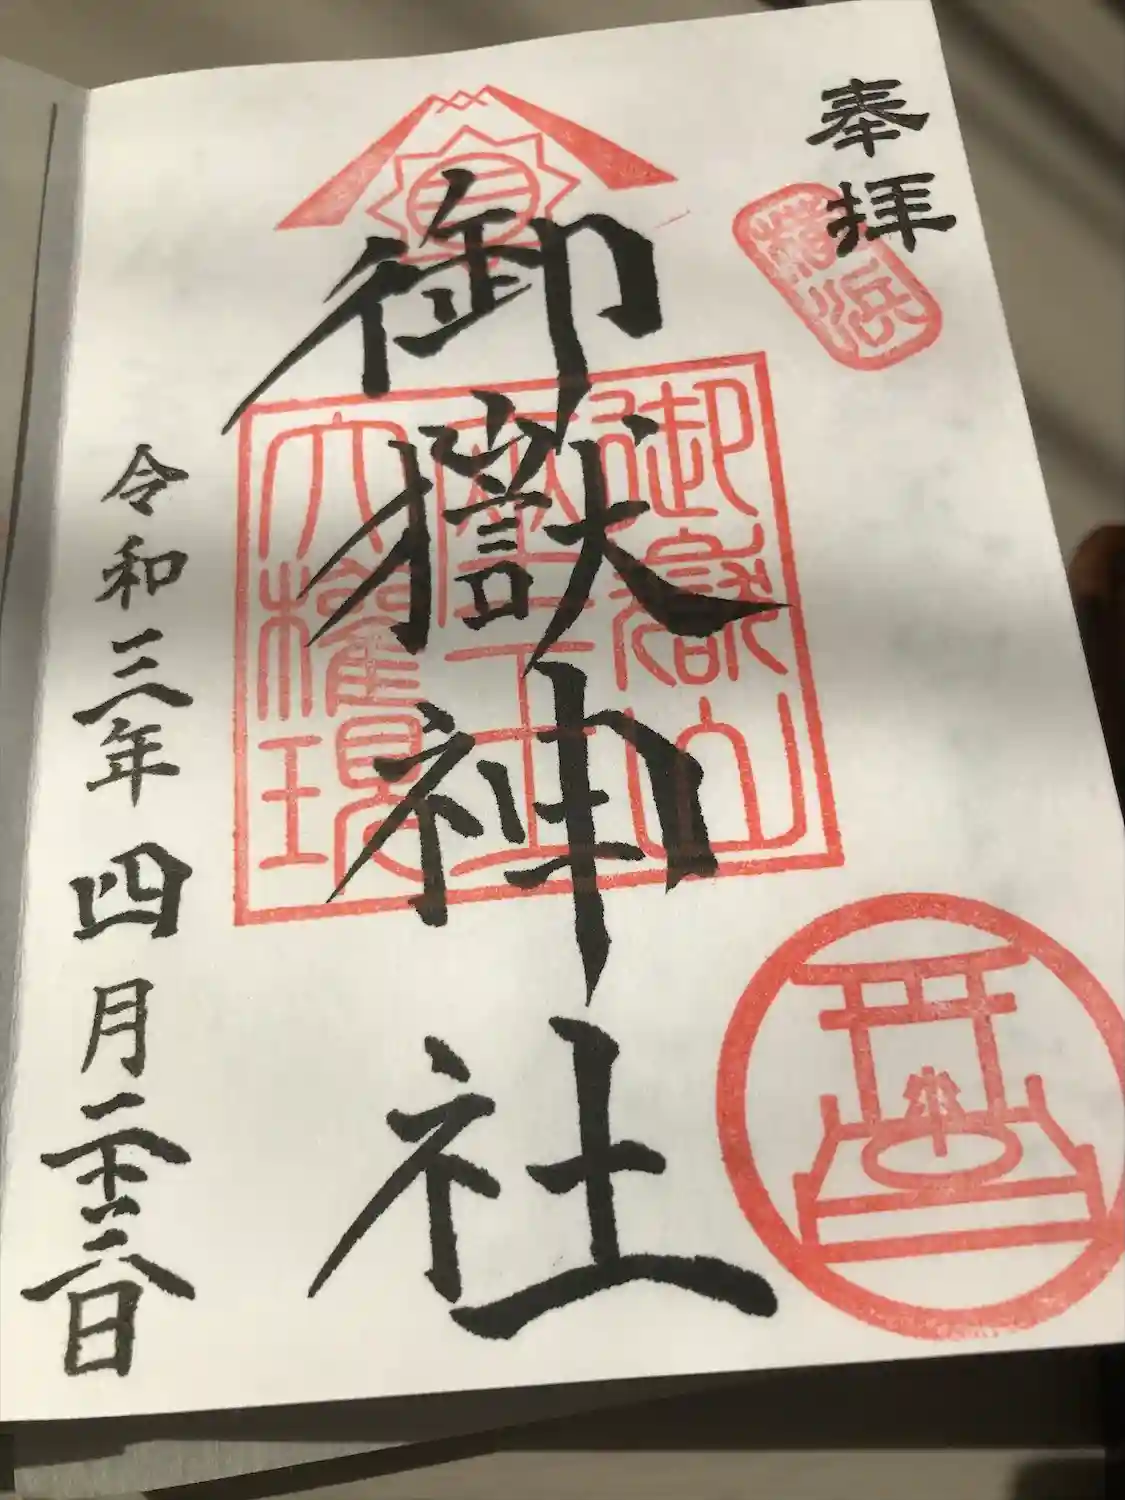 奉拝
横浜
御嶽神社
御嶽山
座王
大権現
令和三年四月二十六日